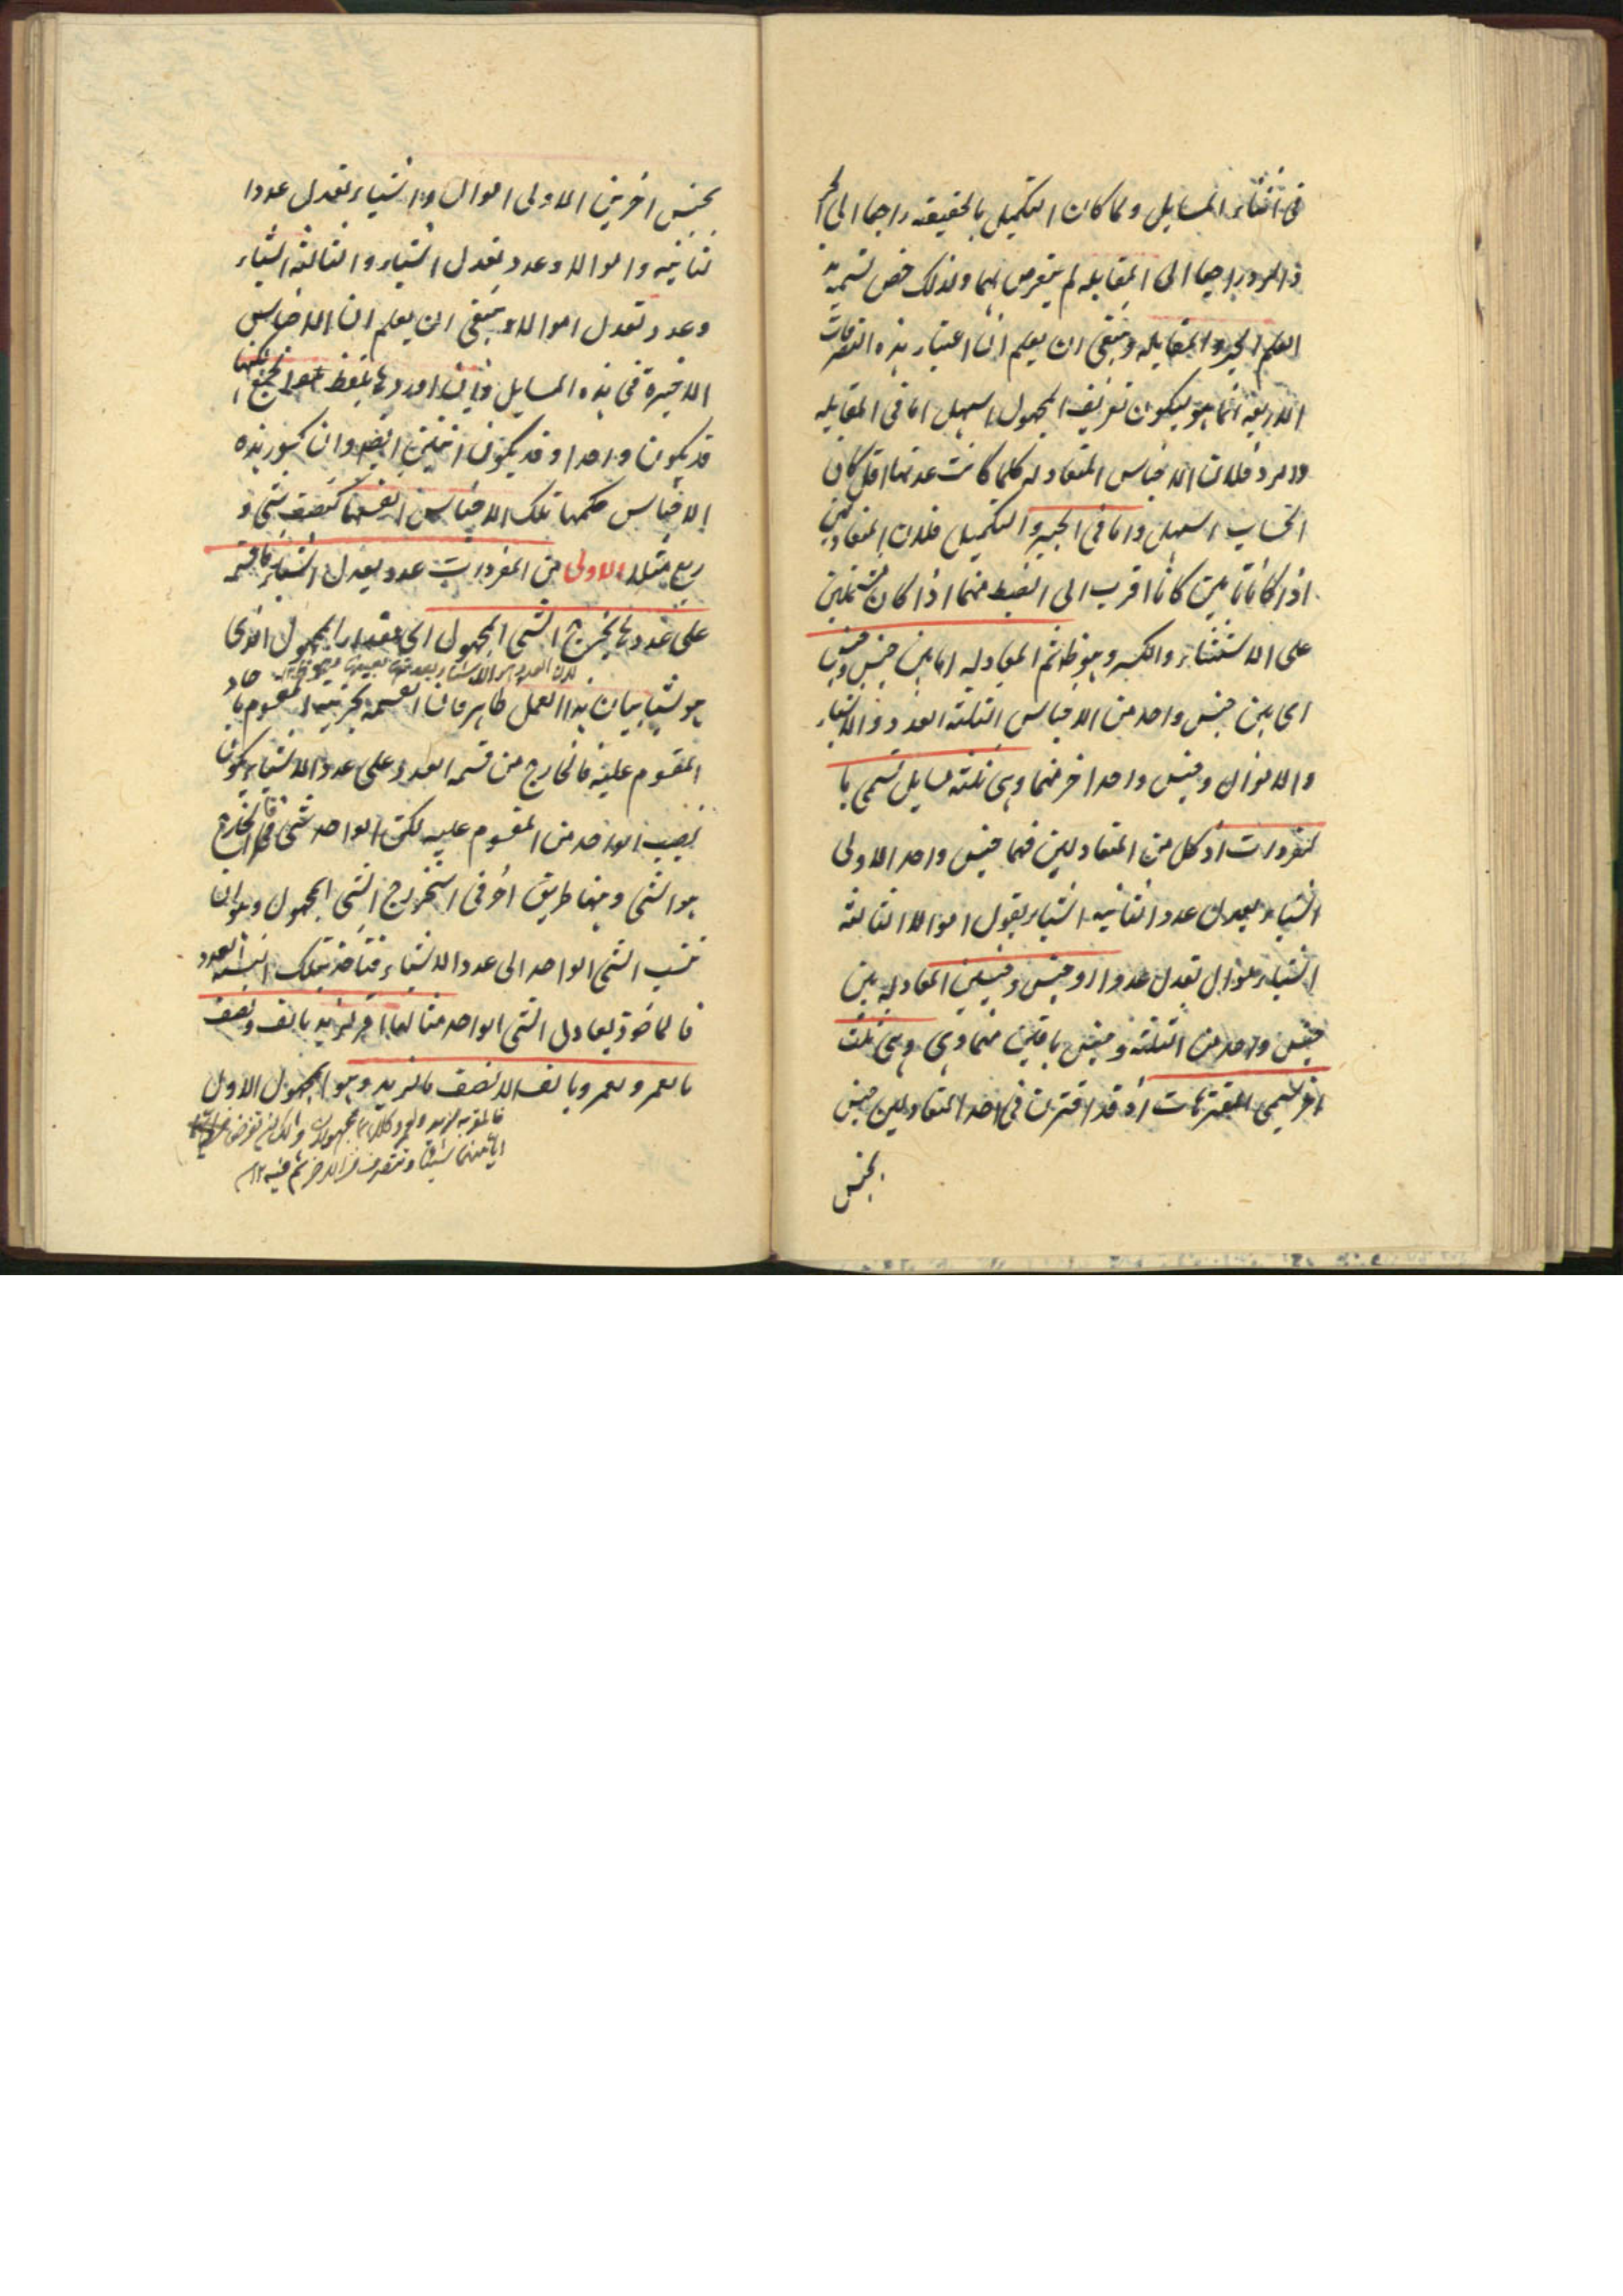 فى اثناء المسايل ولما كان التكميل بالحقيقه راجعا الى الجبر
و الرد راجعا الى المقابله لم يتعرض لهما ولذلك خص تسميه
العلم الجبر والمقابله وينبغى ان يعلم ان اعتبار هذه التصرفات
الاربعه انما هو ليكون تعريف المجهول اسهل اما فى المقابله
والرد فلان الاجناس المتعادله كلما كانت عدتها اقل كان
الحساب اسهل واما فى الجبر والتكميل فلان المتعادلين
اذا كانا تامين كانا اقرب الى الضبط منهما اذا كان مشتملين
على الاستثناء والكسر وهو ظ ثم المعادله اما بين جنس وجنس
اى بين جنس واحد من الاجناس الثلثه العدد والاشياء
والاموال وجنس واحد اخر منهما وهى ثلثه مسايل تسمى با
لمفردات اذ كل من المتعادلين فيها جنس واحد الاولى
اشياء يعدل عددا الثانيه اشياء يعدل اموالا الثالثه
اشياء اموال تعدل عددا او جنس وجنسين المعادله بين
جنس واحد من الثلثه وجنس باقيين منهما وهى وهى ثلث
اخر تسمى المقترنات اذ قد اقترن فى احد المتعادلين جنس
بجنس
بجنس اخر يعنى الاولى اموال واشياء تعدل عددا
الثانيه واموالا وعدد تعدل اشياء والثالثه اشياء
وعدد تعدل اموالا وينبغى ان يعلم ان الاجناس
الاخيرة فى هذه المسايل وان اوردها بلفظ الجمع لكنها
قد يكون واحدا وقد يكون اثنين ايضا وان كسور هذه
الاجناس حكمها تلك الاجناس انفسها كنصف شى و
ربع مثلا الاولى من المفردات عدد يعدل اشياء فاقسمه
على عددها يخرج الشى المجهول اى مقدار المجهول الذى
هو شيئا بيان هذا العمل ظاهر فان القسمه تجزيه المقسوم باحاد
المقسوم عليه فالخارج من قسمه العدد على عدد الاشياء يكون
نصيب الواحد من المقسوم عليه لكن الواحد شى فالخارج
هو الشى وهنا طريق اخر فى استخراج الشى المجهول وهو ان
تنسب الشى الواحد الى عدد الاشياء فتاخذ بتلك النسبه العدد
فالماخوذ يعادل الشى الواحد مثالها اقر لزيد بالف ونصف
ما لعمرو ولعمرو بالف الا نصف ما لزيد وهو المجهول الاول